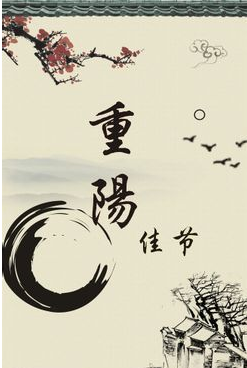 重
陽
佳节